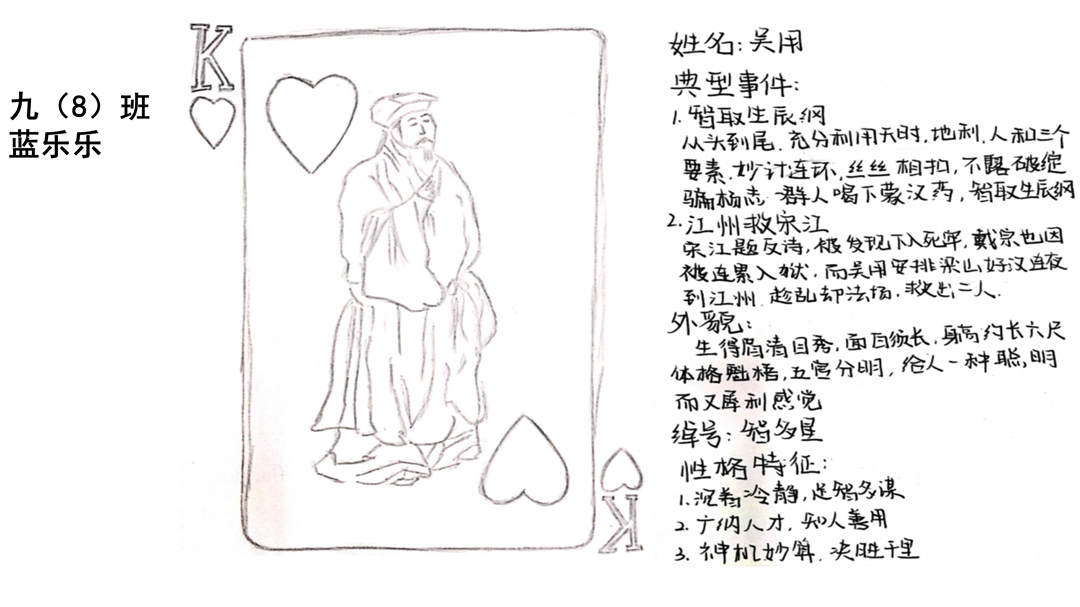 九（8）班
蓝乐乐
K
姓名：吴用
典型事件：
1.智取生辰纲
从头到尾，充分利用天时，地利，人和三个
要素，妙计连环，丝丝相扣，不露破绽
骗杨志一群人喝下蒙汉药，智取生辰纲
2.江州救宋江
宋江题反诗，被发现下入死牢，戴宗也因
被连累入狱，而吴用安排梁山好汉连夜
到江州，趁乱却法场，救出二人.
外貌：
生得眉清目秀，面白须长，身高约长六尺
体格魁梧，五官分明，给人一种聪明
而又犀利感觉
绰号：智多星
性格特征：
1.沉着冷静，足智多谋
2.广纳人才，知人善用
3.神机妙算，决胜千里
K